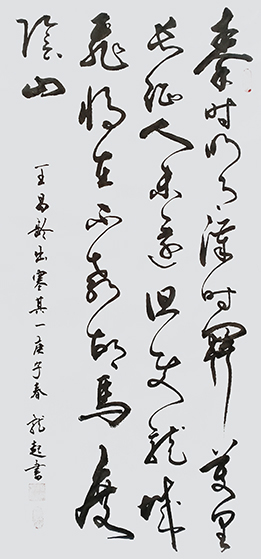 秦时明月汉时关万里
长征人未还但使龙城
飞将在不教胡马度
阴山
王昌龄出塞其一庚子春龙起书